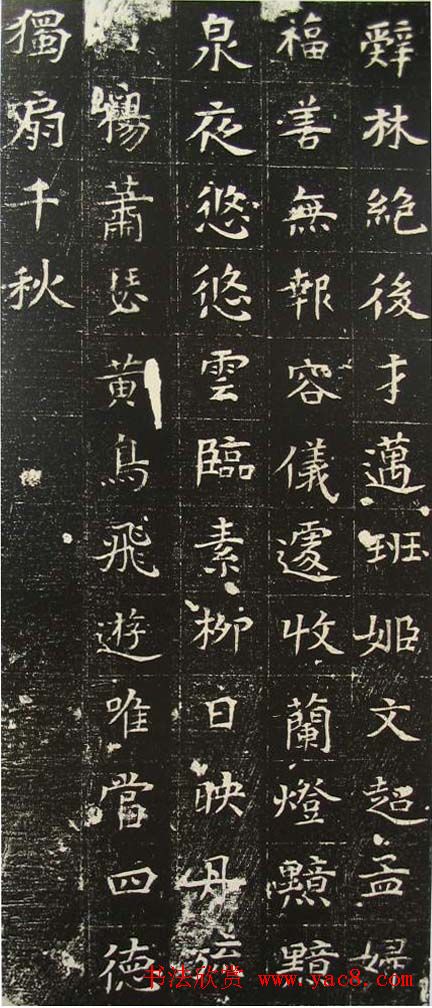 辤林絕後才邁班姬文超孟婦
福善無報容儀遽收蘭燈黯
泉夜悠悠雲臨素柳日映丹
楊蕭瑟黃鳥飛遊唯當四德
獨扇千秋
书法欣赏 www.yac8.com